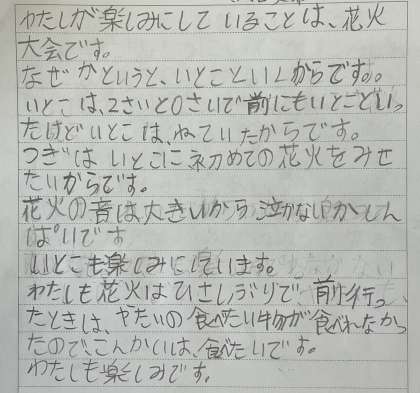 わたしが楽しみにしていることは、花火
大会です。
なぜかというと、いとこといくからです。
いとこは、2さいと0さいで前にもいとこといっ
たけどいとこは、ねていたからです。
つぎはいとこに初めての花火をみせ
たいからです。
花火の音は大きいから泣かないかしん
ぱいです
いとこも楽しみにしています。
わたしも花火はひさしぶりで、前行っ
たときは、やたいの食べたい物が食べれなかっ
たので、こんかいは、食べたいです。
わたしも楽しみです。